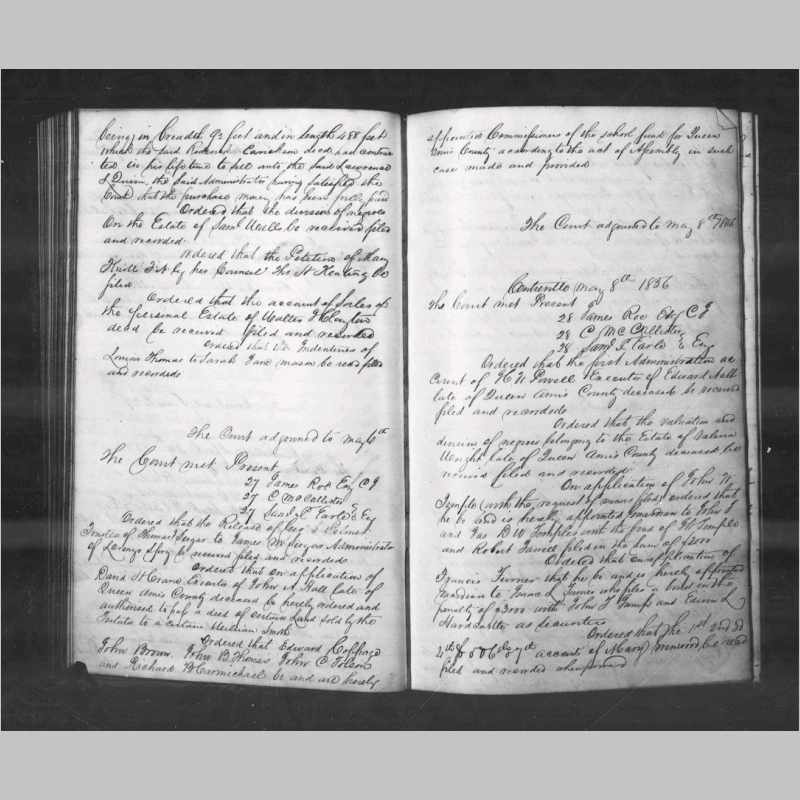 being in breadth 92 feet and in length 488 feet
which the said Richard Carmichael decd. had contrac
ted in his life time to sell unto the said Lawrence
the said Administrator having satisfied the
Court that the purchase money has been fully paid
Ordered that the division of negroes
on the Estate of Saml. be received filed
and recorded
Ordered that the Petition of Mary
by her Counsel be
filed
Ordered that the account of Sales of
the personal Estate of Walter J Clayton
decd be received filed and recorded
Ordered that the Indentures of
Thomas to Sarah Jane mason be read filed
and recorded
The Court adjourned to may 6th
The Court met Present
27 James Roe Esq C J
27 C McCallister
27 Saml T Earle } Esq
Ordered that the Release of Geo
of Thomas Seegar to James M Seegar Administrator
of be received filed and recorded
Ordered that on application of
David Executor of John A Hall late of
Queen Anns County deceased be hereby ordered and
authorised to pass a deed of certain Land sold by the
to a certain Smith
Ordered that Edward Coppage
John Brown, John B Thomas John C
and Richard B Carmichael be and are hereby
appointed Commissioners of the school fund for Queen
Anns County according to the act of Assembly in such
case made and provided
The Court adjouned to may 8th 1856
Centreville may 8th 1856
The Court met Present
28 James Roe Esq C J
28 C McCallister
28 Saml T Earle } Esq
Ordered that the first Administration ac
count of Powell Executor of Edward
late of Queen Anns County deceased be received
filed and recorded
Ordered that the valuation and
division of negroes belonging to the Estate of Valeria
Wright late of Queen Anns County deceased be
received filed and recorded
On application of John W
Temple (with the request of filed) ordered that
he be and is hereby appointed guardian to John T
and Jas B W Temples with the bond of Temple
and Robert filed in the sum of $2000
Ordered that on application of
Francis Turner that he be and is hereby appointed
Guardian to L Turner who files a bond in the
penalty of with John T and Edwin L
Hardcastle as securities
Ordered that the 1st 2nd 3d
4th 5th & 6th & 7th accounts of Mary be read
filed and recorded